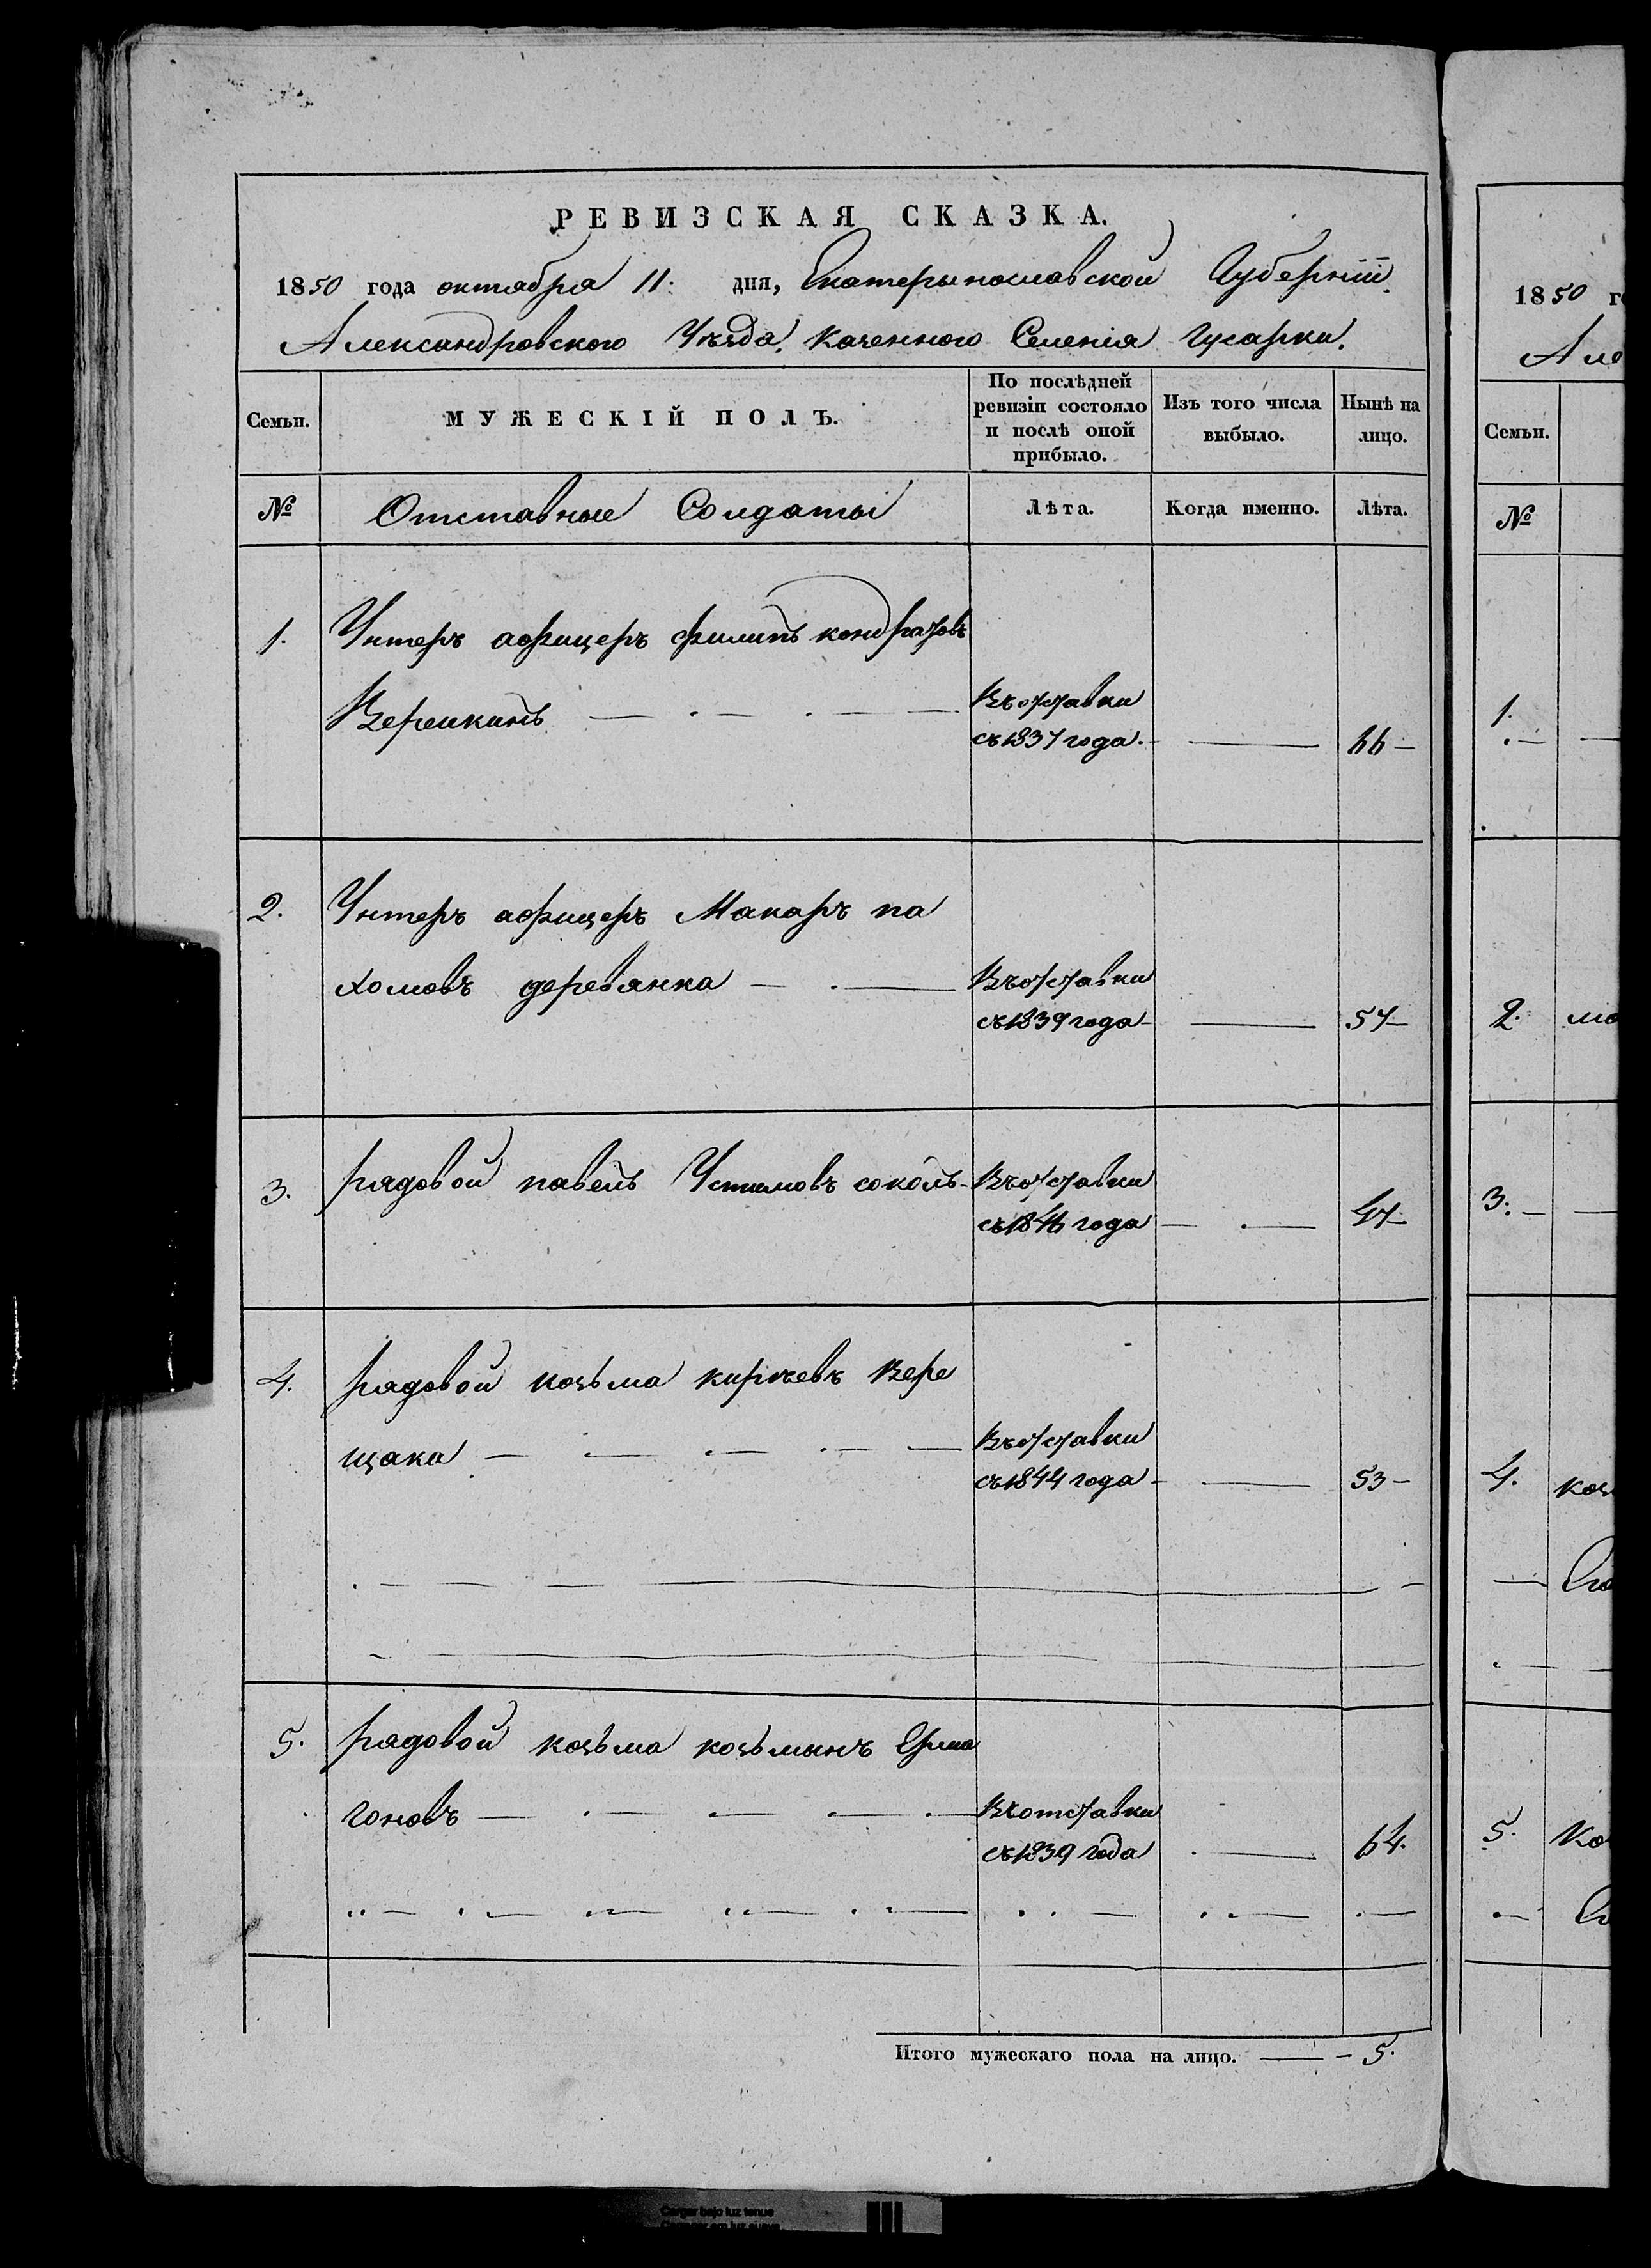 РЕВИЗСКАЯ СКАЗКА.
1850 года октября 11. дня, Екатерынославской Губерніи.
Александровского Уѣзда, казенного Селенія Гусарки.
Семьи.
МУЖЕСКІЙ ПОЛЪ.
По послѣдней ревизіи состояло и послѣ оной прибыло.
Изъ того числа выбыло.
Нынѣ на лицо.
№
Отставные Солдаты
Лѣта.
Когда именно.
Лѣта.
1. Унтеръ афицеръ филипъ кондратовъ
Верешкинъ
Въ отставки
съ 1837 года.
66
2. Унтеръ афицеръ Макаръ па
хомовъ деревянка
Въ отставки
съ 1839 года
57
3. рядовой павелъ Устимовъ соколъ
Въ отставки
съ 1846 года
47
4. рядовой козьма кирѣевъ Вере
щака
Въ отставки
съ 1844 года
53
5. рядовой козьма козьминъ Ерма
гоновъ
Въ отставки
съ 1839 года
64.
Итого мужескаго пола на лицо. 5.
1850
Але
Семьи.
№
1.
2.
3.
4.
5.